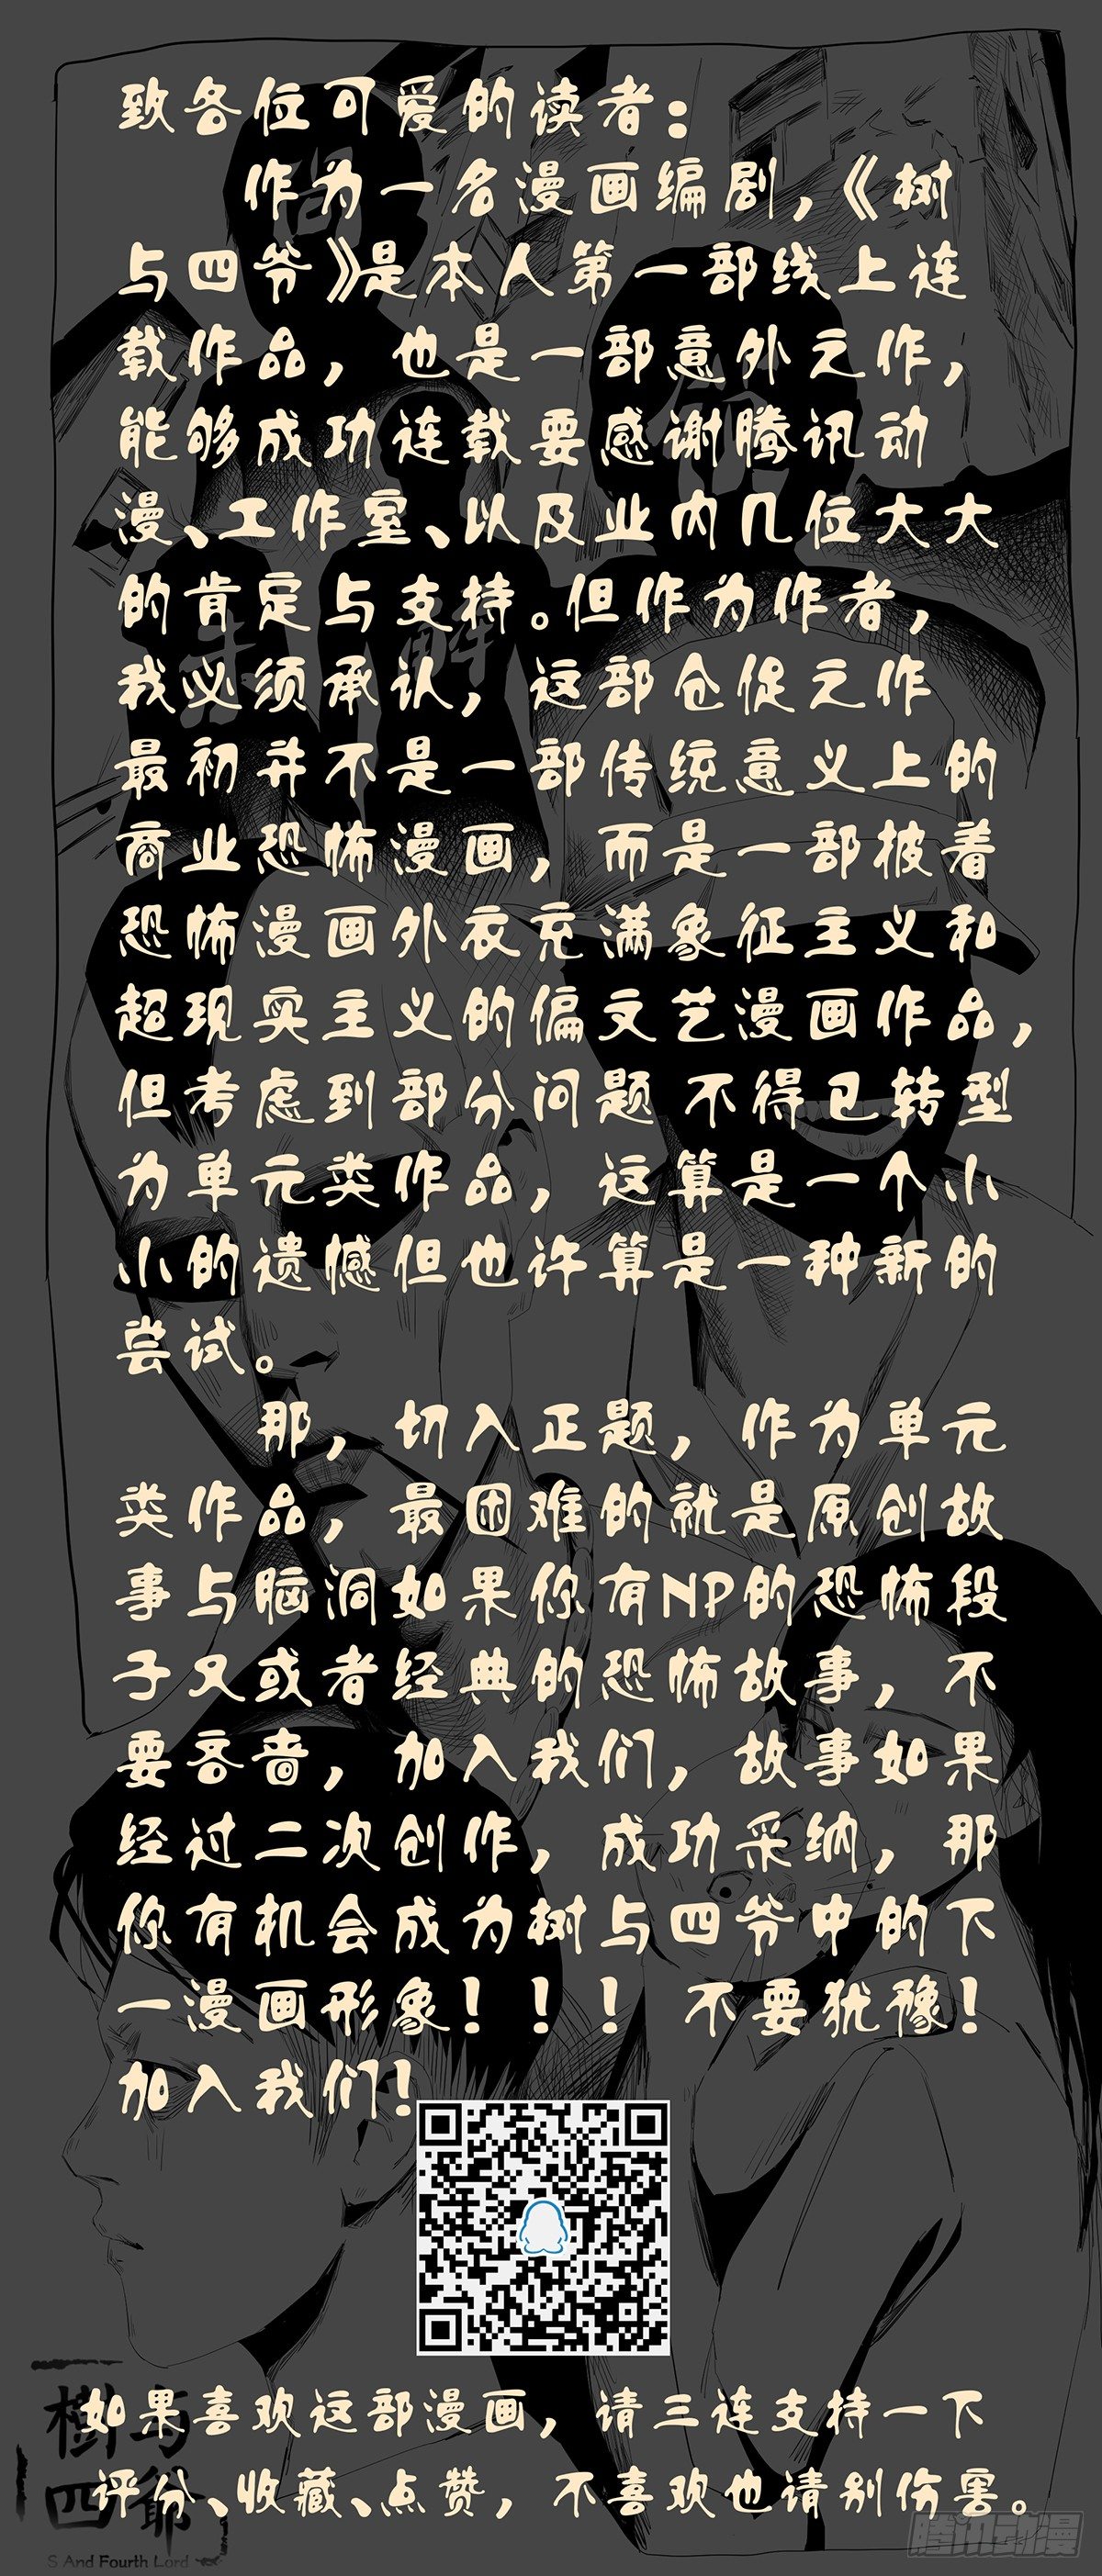 致各位可爱的读者：
作为一名漫画编剧，《树
与四爷》是本人第一部线上连
载作品，也是一部意外之作，
能够成功连载要感谢腾讯动
漫、工作室、以及业内几位大大
的肯定与支持。但作为作者，
我必须承认，这部仓促之作
最初并不是一部传统意义上的
商业恐怖漫画，而是一部披着
恐怖漫画外衣充满象征主义和
超现实主义的偏文艺漫画作品，
但考虑到部分问题 不得已转型
为单元类作品，这算是一个小
小的遗憾但也许算是一种新的
尝试。
那，切入正题，作为单元
类作品，最困难的就是原创故
事与脑洞如果你有NP的恐怖段
子又或者经典的恐怖故事，不
要吝啬，加入我们，故事如果
经过二次创作，成功采纳，那
你有机会成为树与四爷中的下
一漫画形象！！！ 不要犹豫！
加入我们！
如果喜欢这部漫画，请三连支持一下
评分、收藏、点赞，不喜欢也请别伤害。
樹与
四爺
S And Fourth Lord
腾讯动漫